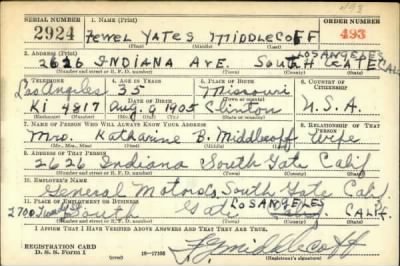 493
SERIAL NUMBER 1. NAME (Print) ORDER NUMBER
2924 Jewel YATES MIDDLECOFF 493
(First) (Middle) (Last)
2. ADDRESS (Print) LOS ANGELES
2626 INDIANA AVE. SOUTH GATE CALIF
(Number and street or R. F. D. number) (Town) (County) (State)
3. TELEPHONE 4. AGE IN YEARS 5. PLACE OF BIRTH 6. COUNTRY OF CITIZENSHIP
Los Angeles 35 Missouri
DATE OF BIRTH U.S.A.
Ki 4817 Aug. 9 1905 Clinton
7. NAME OF PERSON WHO WILL ALWAYS KNOW YOUR ADDRESS 8. RELATIONSHIP OF THAT PERSON
Mrs. Katharine B. Middlecoff Wife
(Mr., Mrs., Miss) (First) (Middle) (Last)
9. ADDRESS OF THAT PERSON
2626 Indiana South Gate Calif
(Number and street or R. F. D. number) (Town) (County) (State)
10. EMPLOYER'S NAME
General Motors, South Gate Calif.
11. PLACE OF EMPLOYMENT OR BUSINESS LOS ANGELES
2700 South Gate Calif.
(Number and street or R. F. D. number) (Town) (County) (State)
I AFFIRM THAT I HAVE VERIFIED ABOVE ANSWERS AND THAT THEY ARE TRUE.
REGISTRATION CARD
D. S. S. Form 1 16—17105 J Y Middlecoff
(Registrant's signature)